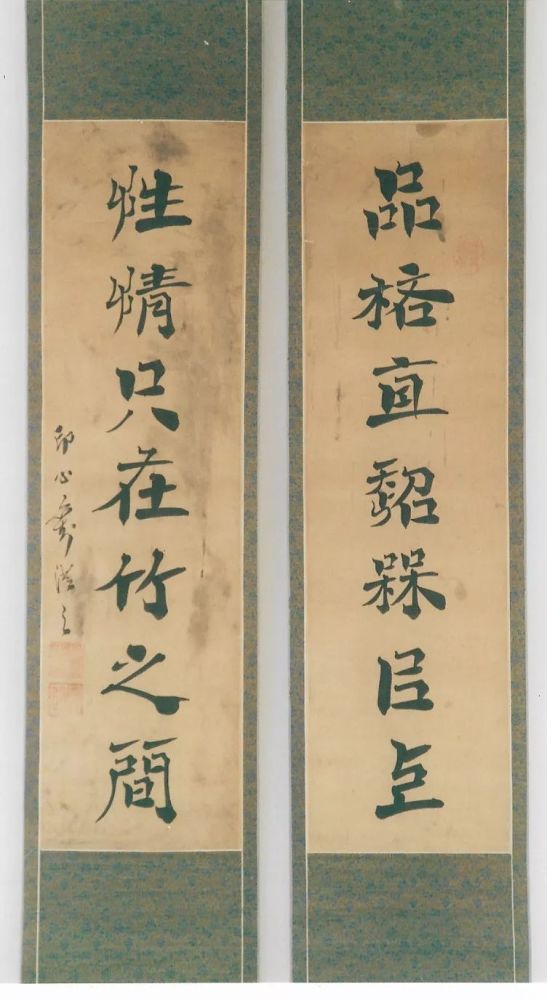 品格直超槑㠯上
性情只在竹之間
印心